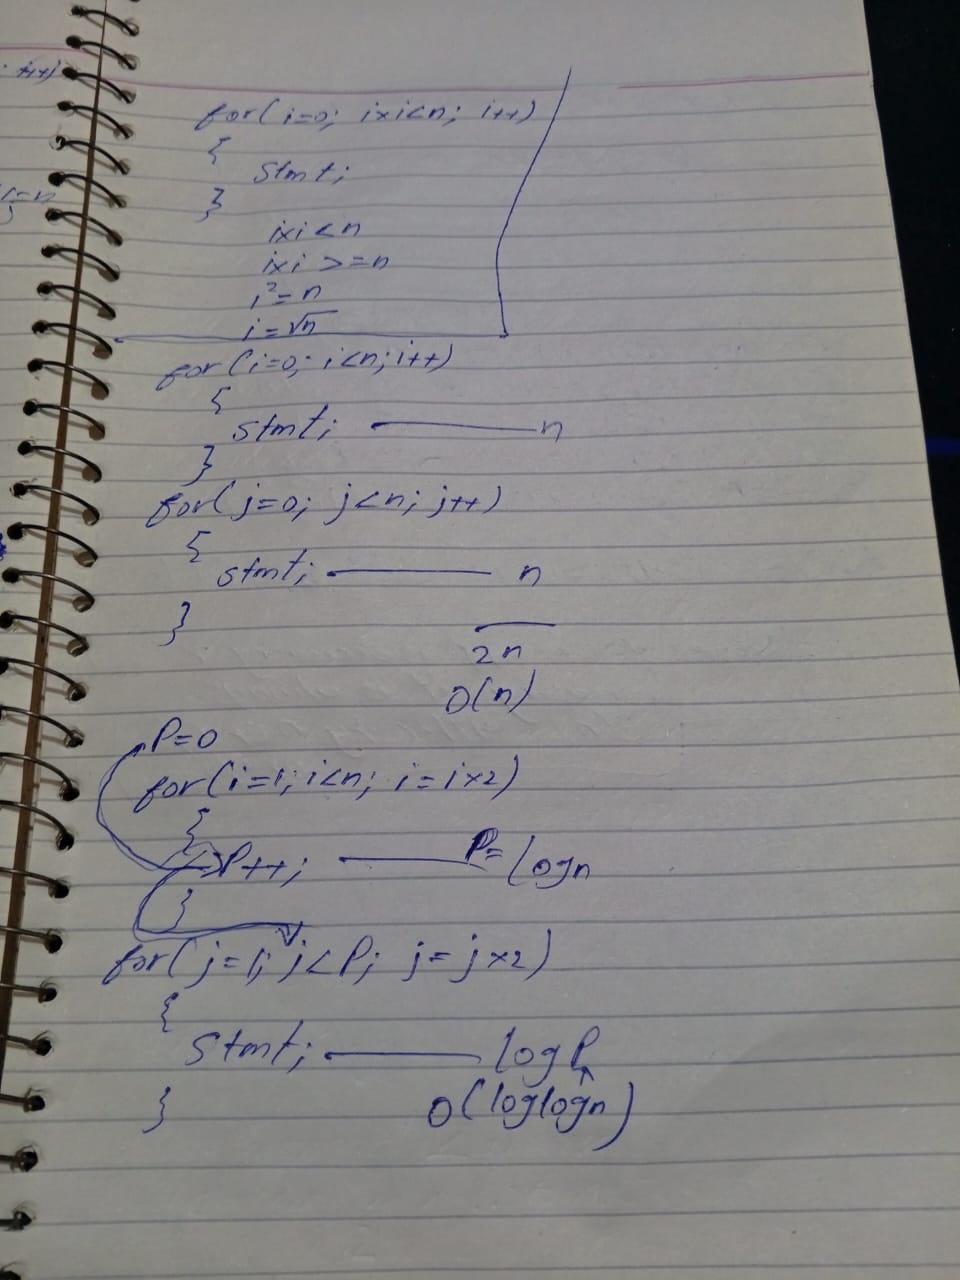 for(i=0; i×i<n; i++)
{
stmt;
}
i×i<n
i×i >=n
i²=n
i=√n
for(i=0; i<n; i++)
{
stmt; n
}
for(j=0; j<n; j++)
{
stmt; n
}
2n
O(n)
P=0
for(i=1; i<n; i=i×2)
{
P++; P= logn
}
for(j=1; j<P; j=j×2)
{
stmt; log P
} O(loglogn)